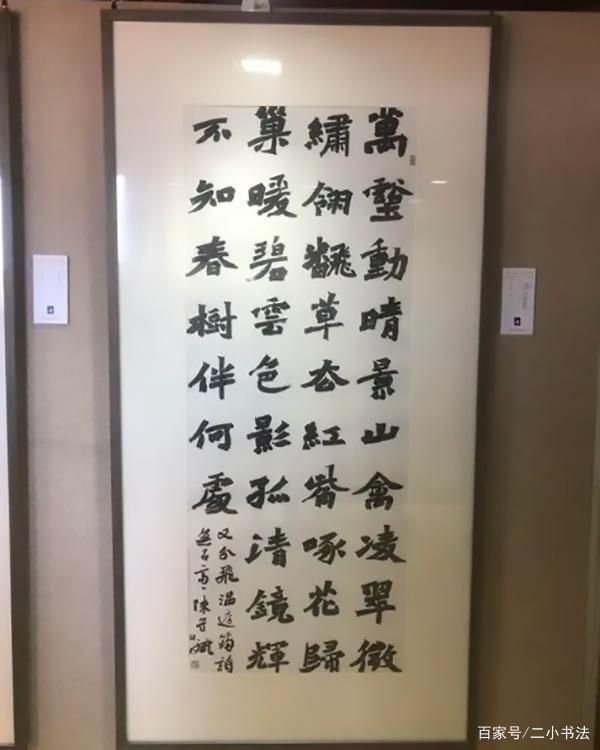 萬壑動晴景山禽凌翠微
繡翎飜草去紅觜啄花歸
巢暖碧雲色影孤清鏡輝
不知春樹伴何處
又分飛温庭筠詩
陳守
百家号/二小书法